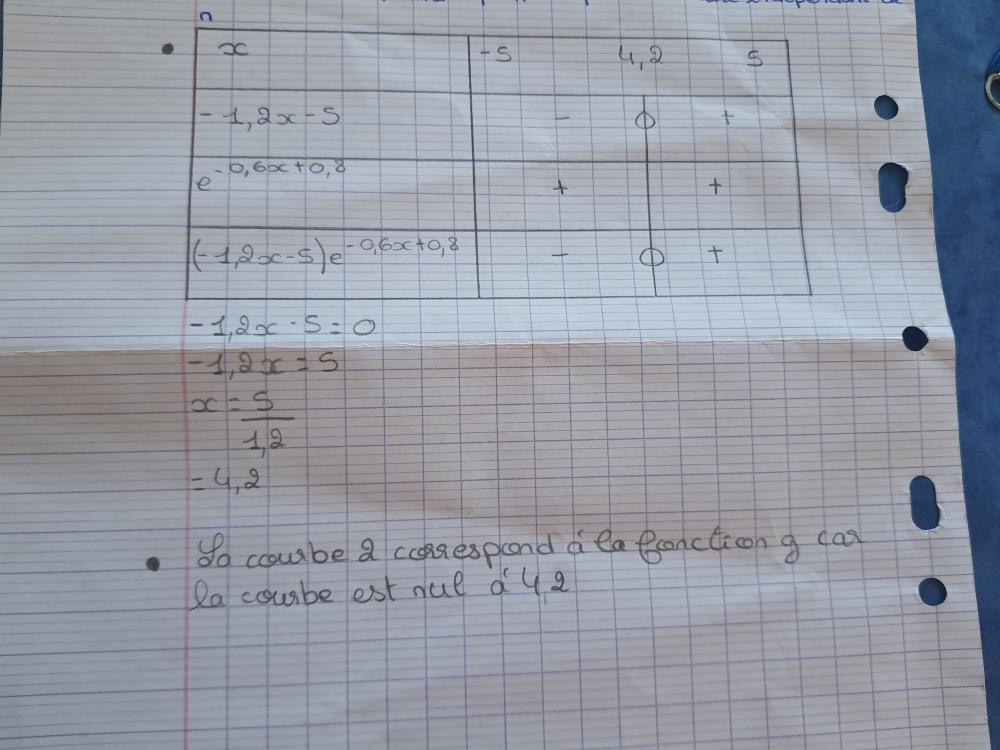 x -5 4,2 5
-1,2x-5 - 0 +
e^-0,6x+0,8 + +
(-1,2x-5)e^-0,6x+0,8 - 0 +
-1,2x-5=0
-1,2x=5
x=5
1,2
=4,2
La courbe 2 correspond à la fonction g car
la courbe est nul à 4,2